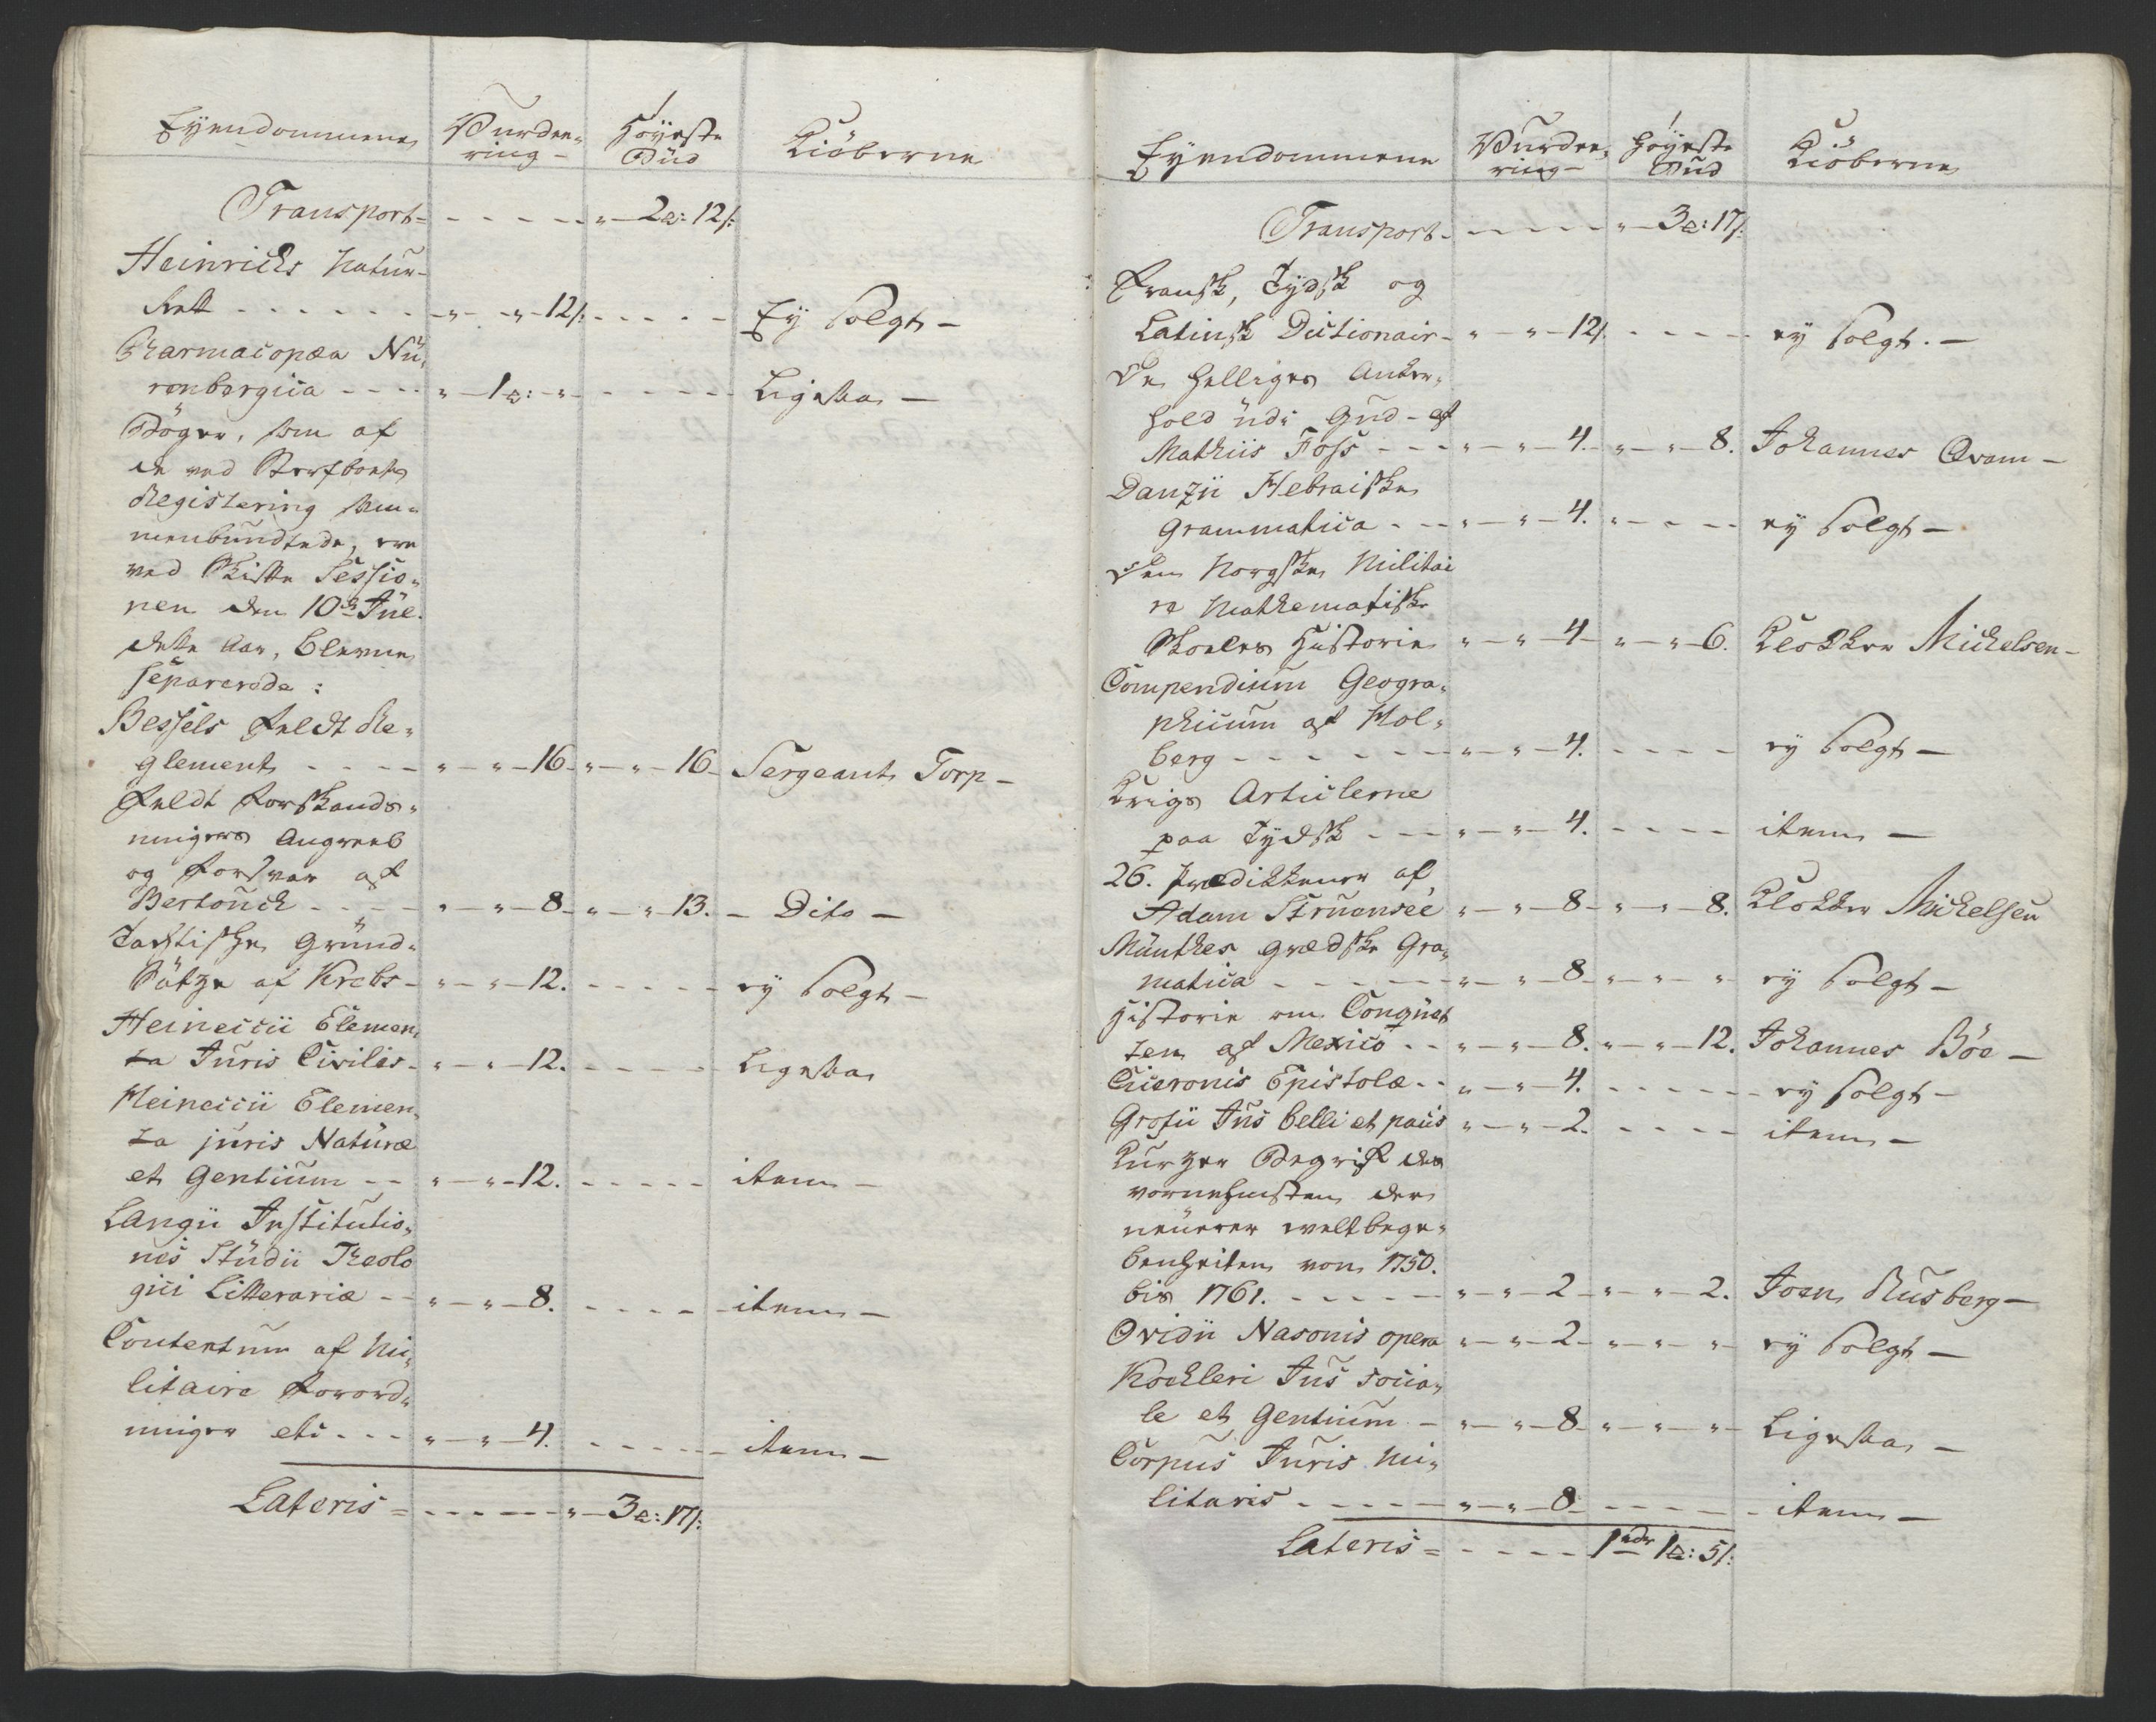 Eyendommene Vurdee= Høyeste Kiöberne
ring – Bud
Transport - - - - - - „ – 2 ꝛ: 12 s:
Heinrichs Natur-
Rett - - - - - - „ - „ - 12 s: - - - - - Ey solgt –
Pharmacopæa Nü=
renbergica - - - - „ – 1 ꝛ: - „ - - - - - Ligesaa –
Bøger, som af
de ved Sterfboets
Registering sam=
menbundtede, ere
ved Skifte Sessio=
nen den 10de Jul.
dette Aar, blevne
separerede:
Bessels Feldt Re=
glement - - - - „ – „ – 16 „ – „ – 16 – Sergeant Torp –
Feldt Forskands=
ningers Angreeb
og Forsvar af
Bertouch - - - - „ – „ – 8 – „ – „ – 13. – Dito –
Tactische Gründ=
Sätze af Krebs – „ – „ – 12. - - - - - ey solgt –
Heineccii Elemen=
ta Juris Civilis – „ – „ – 12. - - - - - Ligesaa
Heineccii Elemen=
ta juris Naturæ
et Gentium - - „ – „ – 12. - - - - - item –
Langii Institutio=
nes Studii Theolo
gici Litterariæ - - „ – „ – 8. - - - - - item –
Contentum af Mi=
litaire Forord=
ninger etc - - - „ – „ – 4. - - - - - item –
Lateris = - - - - - „ – 3 ꝛ: 17 s:
Eyendommene Vurdee= Høyeste Kiöberne
ring – Bud
Transport - - - - - - „ – 3 ꝛ: 17 s:
Fransk, Tydsk og
Latinsk Dictionair – „ – „ – 12 s. - - - - ey solgt. –
De Helliges Anker=
hold udi Gud – af
Mathiis Foss - - - „ – „ – 4. „ – „ – 8. Johannes Qvam –
Danzii Hebraiske
Grammatica - - - „ – „ – 4. „ - - - - ey solgt –
Den Norgske Militai
re Mathematiske
Skoeles Historie „ – „ – 4 – „ – „ – 6. Klokker Michelsen –
Compendium Geogra=
phicum af Hol=
berg - - - - - - „ – „ – 4. - - - - ey solgt –
Krigs Articlerne
paa Tydsk - - - „ – „ – 4. - - - - item –
26. Prædikkener af
Adam Struensee „ – „ – 8 – „ – „ – 8. Klokker Michelsen
Münthes Grædske Gra=
matica - - - - - „ – „ – 8 – „ – „ – „ – ey solgt –
Historie om Conquet
ten af Mexico - - „ – „ – 8. „ – „ – 12. Johannes Böe –
Ciceronis Epistolæ - - „ – „ – 4. - - - - - - ey solgt –
Grotii Jus belli et pacis „ – „ – 2. - - - - item –
Kurzer Begrif des
vornehmsten der
neüerer weltbege=
benheiten von 1750.
bis 1761. - - - - - „ – „ – 2 – „ – „ – 2. Joen Rusberg –
Ovidii Nasonis opera „ – „ – 2 – „ – „ – „ – ey solgt –
Koehleri Jus socia=
le et Gentium – „ – „ – 8 – „ – „ – „ – Ligesaa –
Corpus Juris Mi=
litaris - - - - - - „ – „ – 8 - - - - - item –
Lateris = - - - - 1 rdr 1 ꝛ: 5 s: